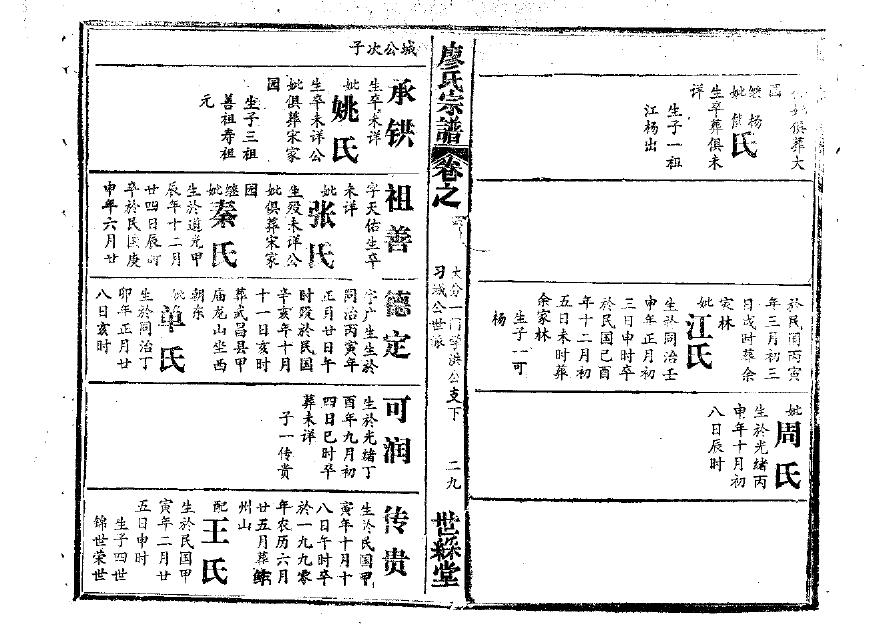 妣俱葬大
园
继 杨
妣熊氏
生卒葬俱未
详
生子一祖
江杨出
於民国丙寅
年三月初三
日戌时葬余
家林
妣江氏
生於同治壬
申年正月初
三日申时卒
於民国己酉
年十二月初
五日未时葬
余家林
生子一可
杨
妣周氏
生於光绪丙
申年十月初
八日辰时
廖氏宗譜
卷之
大分一门学洪公支下
习城公世派
二九
世綵堂
城公次子
承鉷
生卒未详
妣姚氏
生卒未详公
妣俱葬宋家
园
生子三祖
善祖寿祖
元
祖善
字天佑生卒
未详
妣张氏
生殁未详公
妣俱葬宋家
园
继妣秦氏
生於道光甲
辰年十二月
廿四日辰时
卒於民国庚
申年六月廿
德定
字广生生於
同治丙寅年
正月廿日午
时殁於民国
辛亥年十月
十一日亥时
葬武昌县甲
庙龙山坐西
朝东
妣单氏
生於同治丁
卯年正月廿
八日亥时
可润
生於光绪丁
酉年九月初
四日巳时卒
葬未详
子一传贵
传贵
生於民国甲
寅年十月十
八日午时卒
於一九九零
年农历六月
廿五月葬
州山
配王氏
生於民国甲
寅年二月廿
五日申时
生子四世
锦世荣世